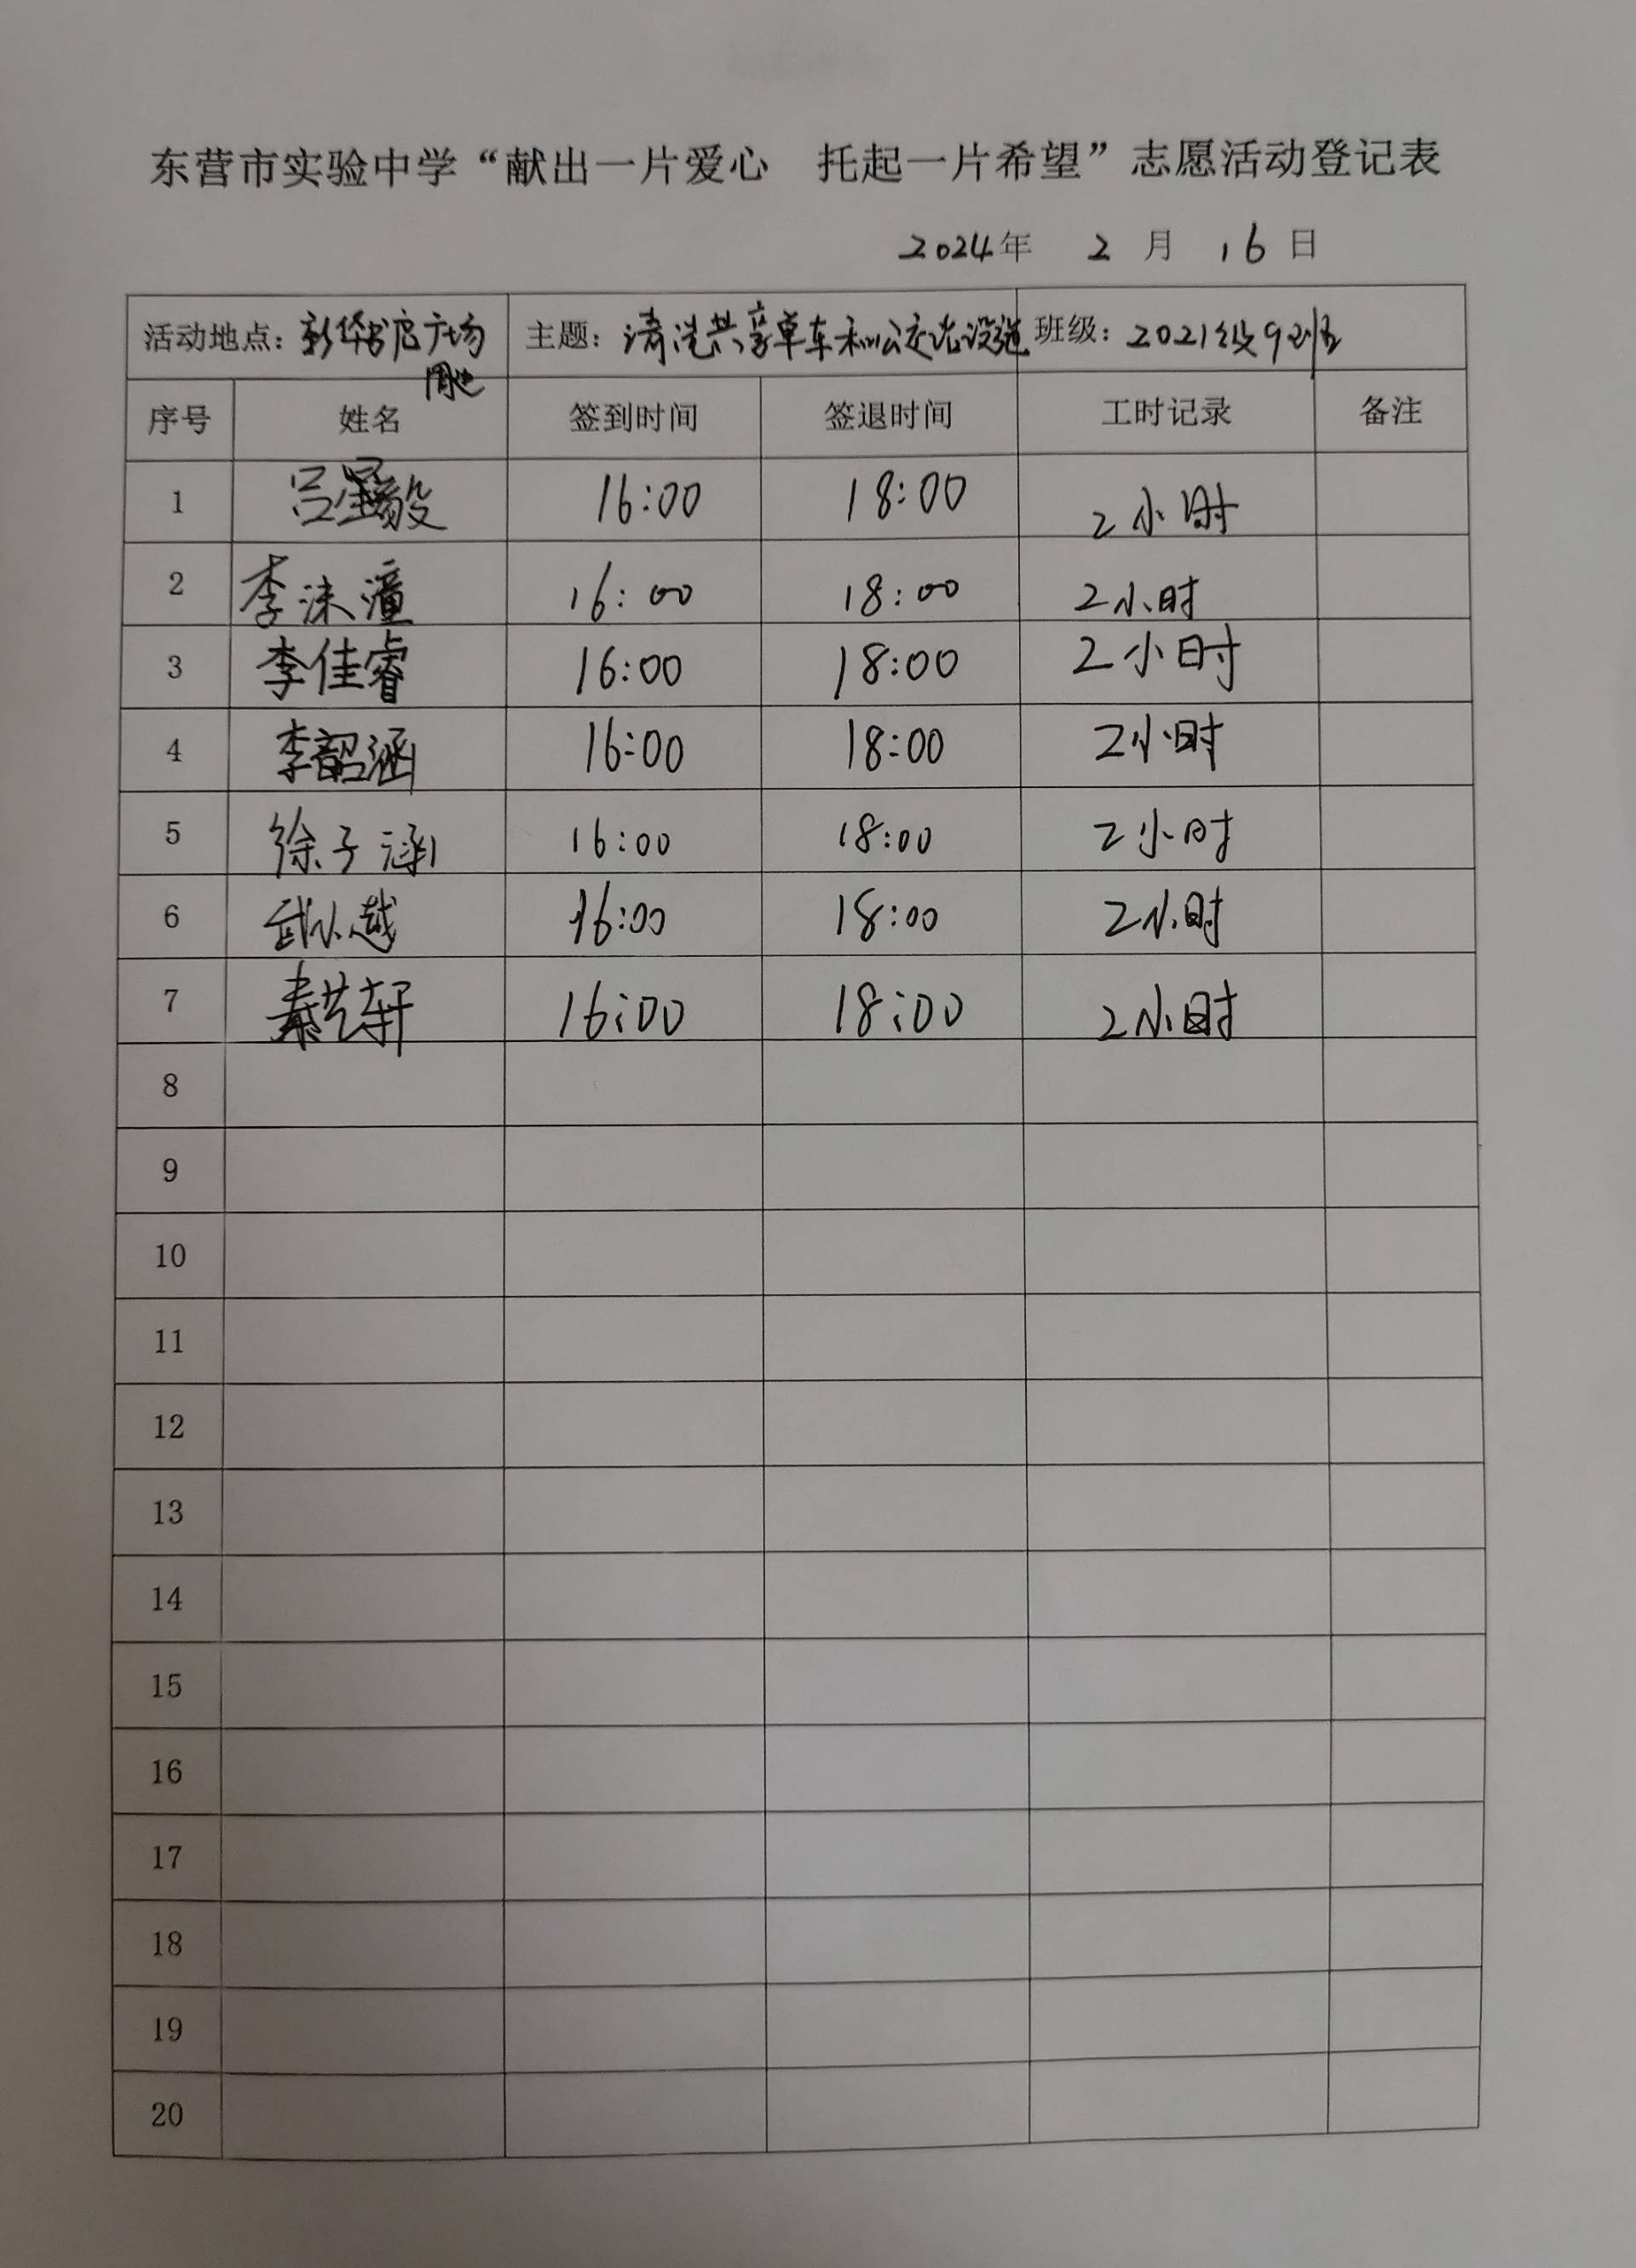 东营市实验中学“献出一片爱心 托起一片希望”志愿活动登记表
2024年 2 月 16 日
活动地点：新华书店广场周边 主题：清洗共享单车和公交站设施 班级：2021级9班
序号 姓名 签到时间 签退时间 工时记录 备注
1 吕 毅 16:00 18:00 2小时
2 李沫潼 16:00 18:00 2小时
3 李佳睿 16:00 18:00 2小时
4 李韶涵 16:00 18:00 2小时
5 徐子涵 16:00 18:00 2小时
6 武 越 16:00 18:00 2小时
7 秦艺轩 16:00 18:00 2小时
8
9
10
11
12
13
14
15
16
17
18
19
20